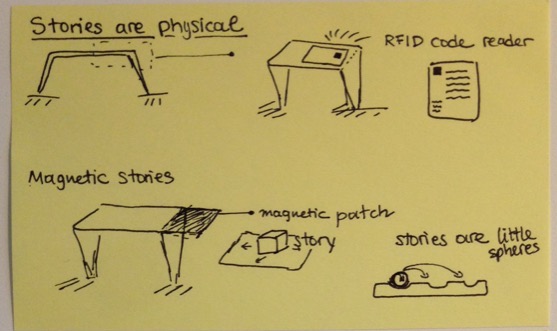 Stories are physical
RFID code reader
Magnetic stories
magnetic patch
story
stories are little
spheres